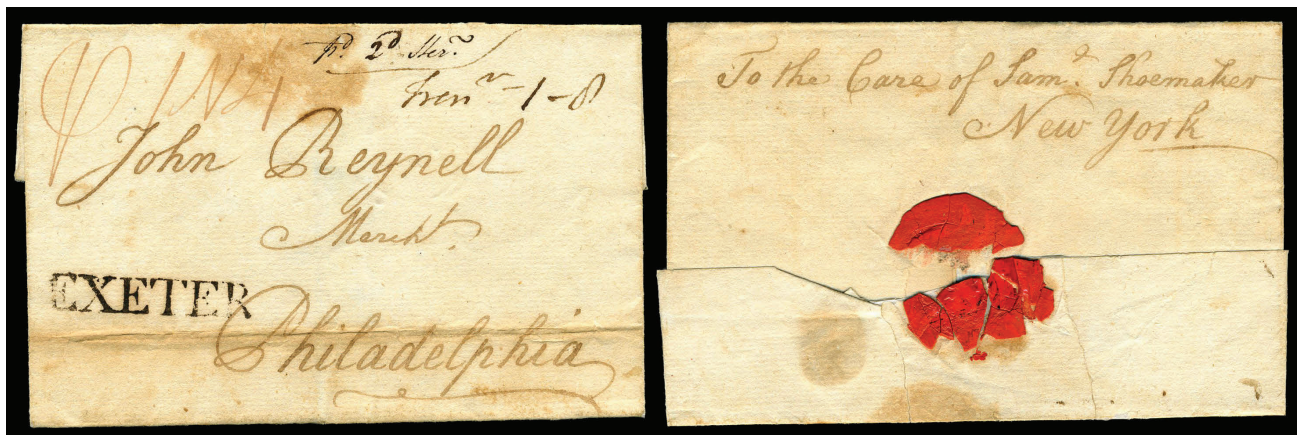 pd 2d Ster.
1N4
1-8
John Reynell
Mercht.
EXETER
Philadelphia
To the Care of Saml. Shoemaker
New York